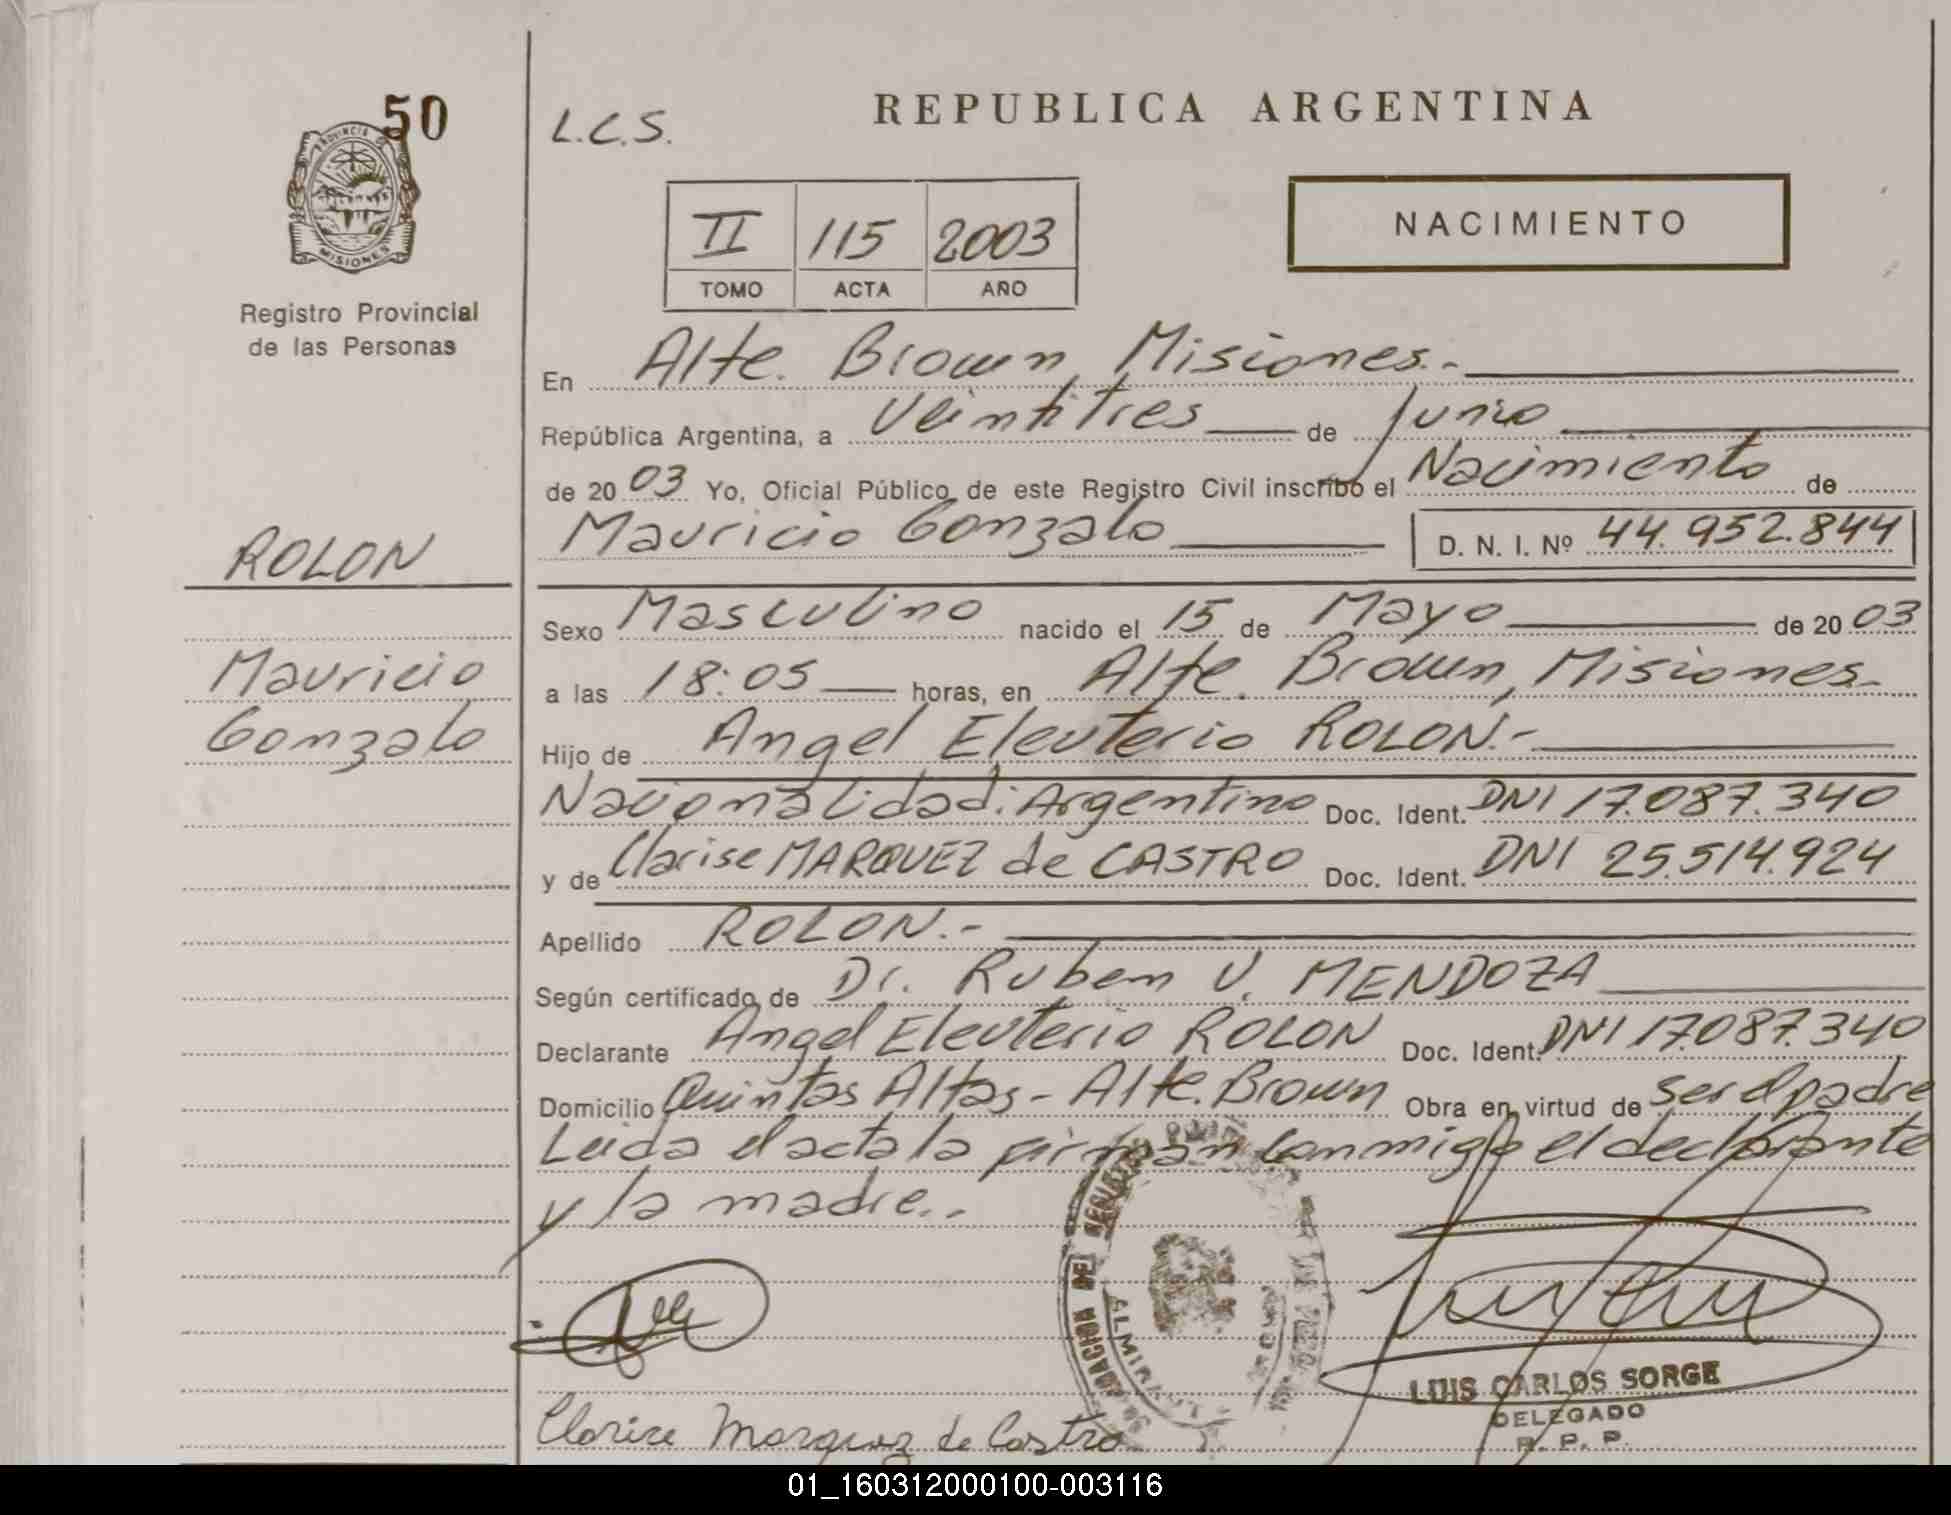 50
PROVINCIA
MISIONES
Registro Provincial
de las Personas
ROLON
Mauricio
Gonzalo
L.C.S.
REPUBLICA ARGENTINA
II 115 2003
TOMO ACTA AÑO
NACIMIENTO
En Alte. Brown, Misiones.-
República Argentina, a Veintitres de Junio
de 2003 Yo, Oficial Público de este Registro Civil inscribo el Nacimiento de
Mauricio Gonzalo D. N. I. Nº 44.952.844
Sexo Masculino nacido el 15 de Mayo de 2003
a las 18:05 horas, en Alte. Brown, Misiones.-
Hijo de Angel Eleuterio ROLON.-
Nacionalidad: Argentino Doc. Ident. DNI 17.087.340
y de Clarise MARQUEZ de CASTRO Doc. Ident. DNI 25.514.924
Apellido ROLON.-
Según certificado de Dr. Ruben V. MENDOZA
Declarante Angel Eleuterio ROLON Doc. Ident. DNI 17.087.340
Domicilio Quintas Altas - Alte. Brown Obra en virtud de ser el padre
Leida el acta la firman conmigo el declarante
y la madre.-
ALMIRANTE BROWN
LUIS CARLOS SORGE
DELEGADO
R. P. P.
Clarise Marquez de Castro
01_160312000100-003116